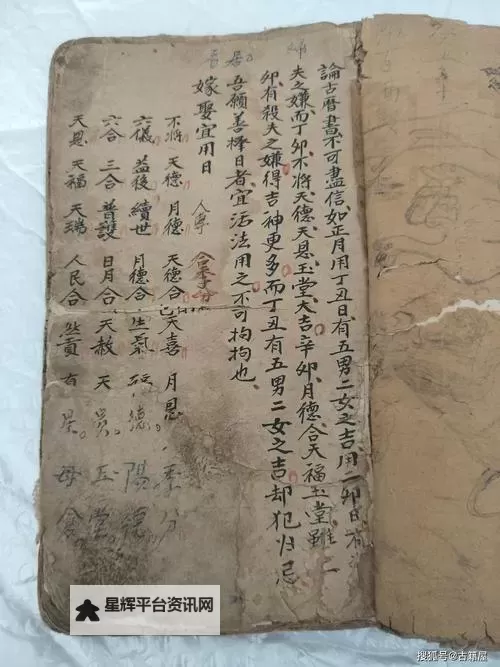 論古曆書不可盡信、如正月用丁丑日、有五男二女之吉、用二卯日、有
夫之嫌、而丁卯不將天德天恩玉堂大吉、辛卯月德合天福玉堂、雖二
卯有殺夫之嫌得吉神更多而丁丑有五男二女之吉却犯归忌
吾願善擇日者宜活法用之不可拘拘也、
嫁娶宜用日
不將 天德 月德 天德合 天喜 月恩 季分
六儀 益後 續世 月德合 生氣 德 陽德
六合 三合 普護 日月合 天赦 天 玉堂
天恩 天福 天瑞 人民合 母倉
星辉平台资讯网
搜狐号@古籍屋